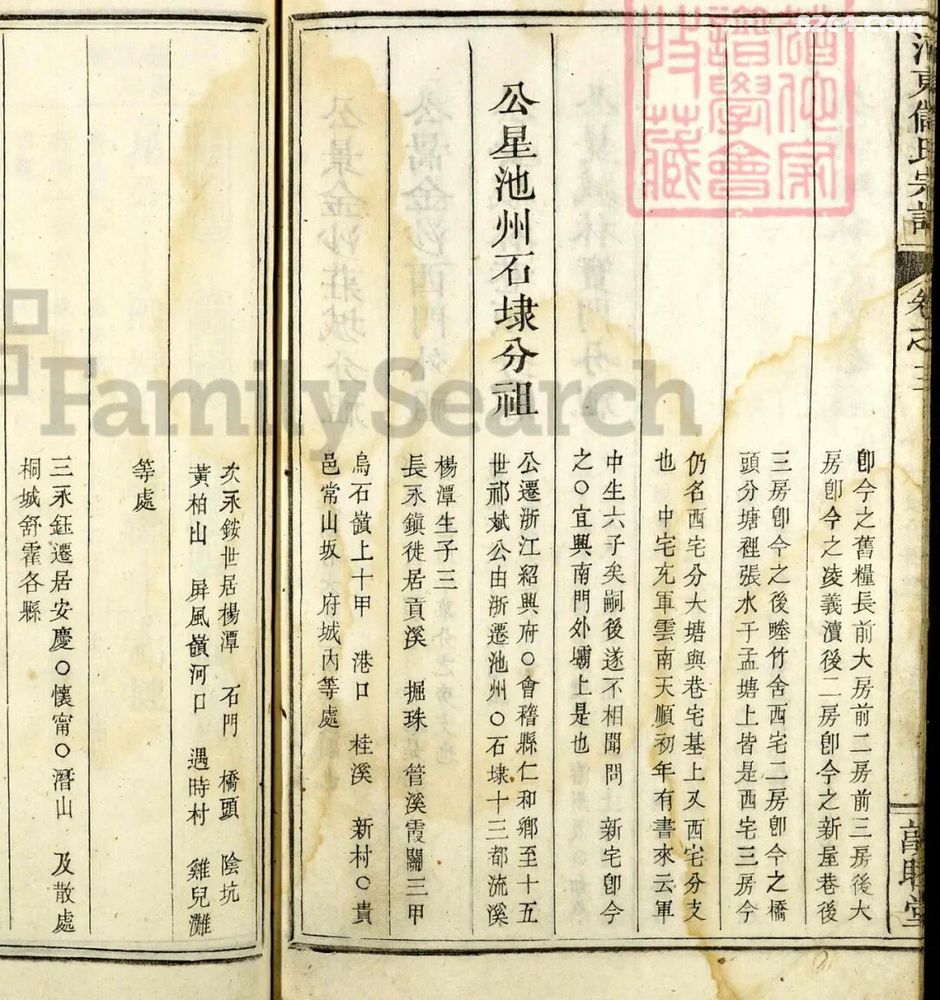 8264.COM
河東儲氏宗譜
卷之三
敦睦堂
卽今之舊糧長前大房前二房前三房後大
房卽今之凌義瀆後二房卽今之新屋巷後
三房卽今之後塍竹舍西宅二房卽今之橋
頭分塘裡張水干孟塘上皆是西宅三房今
仍名西宅分大塘與巷宅基上又西宅分支
也 中宅充軍雲南天順初年有書來云軍
中生六子矣嗣後遂不相聞問 新宅卽今
之〇宜興南門外壩上是也
公星池州石埭分祖
公遷浙江紹興府〇會稽縣仁和鄉至十五
世祁斌公由浙遷池州〇石埭十三都流溪
楊潭生子三
長永鎭徙居貢溪 掘珠 管溪霞關三甲
烏石嶺上十甲 港口 桂溪 新村〇貴
邑常山坂 府城內等處
次永銨世居楊潭 石門 橋頭 陰坑
黃柏山 屏風嶺河口 遇時村 雞兒灘
等處
三永鈺遷居安慶〇懷甯〇潛山 及散處
桐城舒霍各縣
FamilySearch